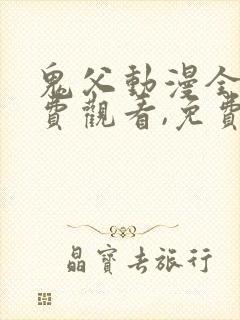 鬼父動漫全
費觀看,免費
晶寶去旅行